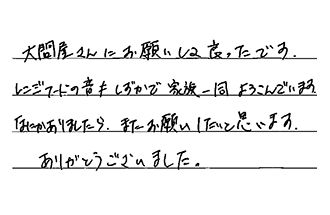 大問屋さんにお願いして良ったです.
レンジフードの音もしずかで家族一同よろこんでいます
なにかありましたら.またお願いしたいと思います.
ありがとうございました。